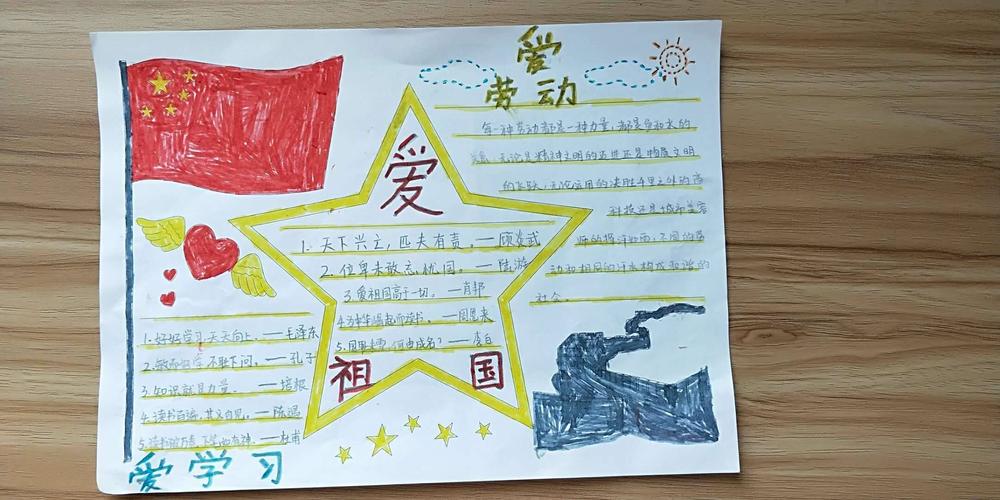 爱
劳动
每一种劳动都是一种力量,都是
无论是精神文明的迈进还是物质文明
的飞跃,无论运用的决胜千里之外的高
科技还是城市美容
师的挥汗如雨,不同的劳
动和相同的汗水构成和谐的
社会。
爱
1. 天下兴亡,匹夫有责。——顾炎武
2. 位卑未敢忘忧国。——陆游
3. 爱祖国高于一切。——肖邦
4. 为中华崛起而读书。——周恩来
5. 国耻未雪,何由成名?——李白
祖国
1. 好好学习,天天向上。——毛泽东
2. 敏而好学,不耻下问。——孔子
3. 知识就是力量。——培根
4. 读书百遍,其义自见。——陈遇
5. 读书破万卷,下笔如有神。——杜甫
爱学习